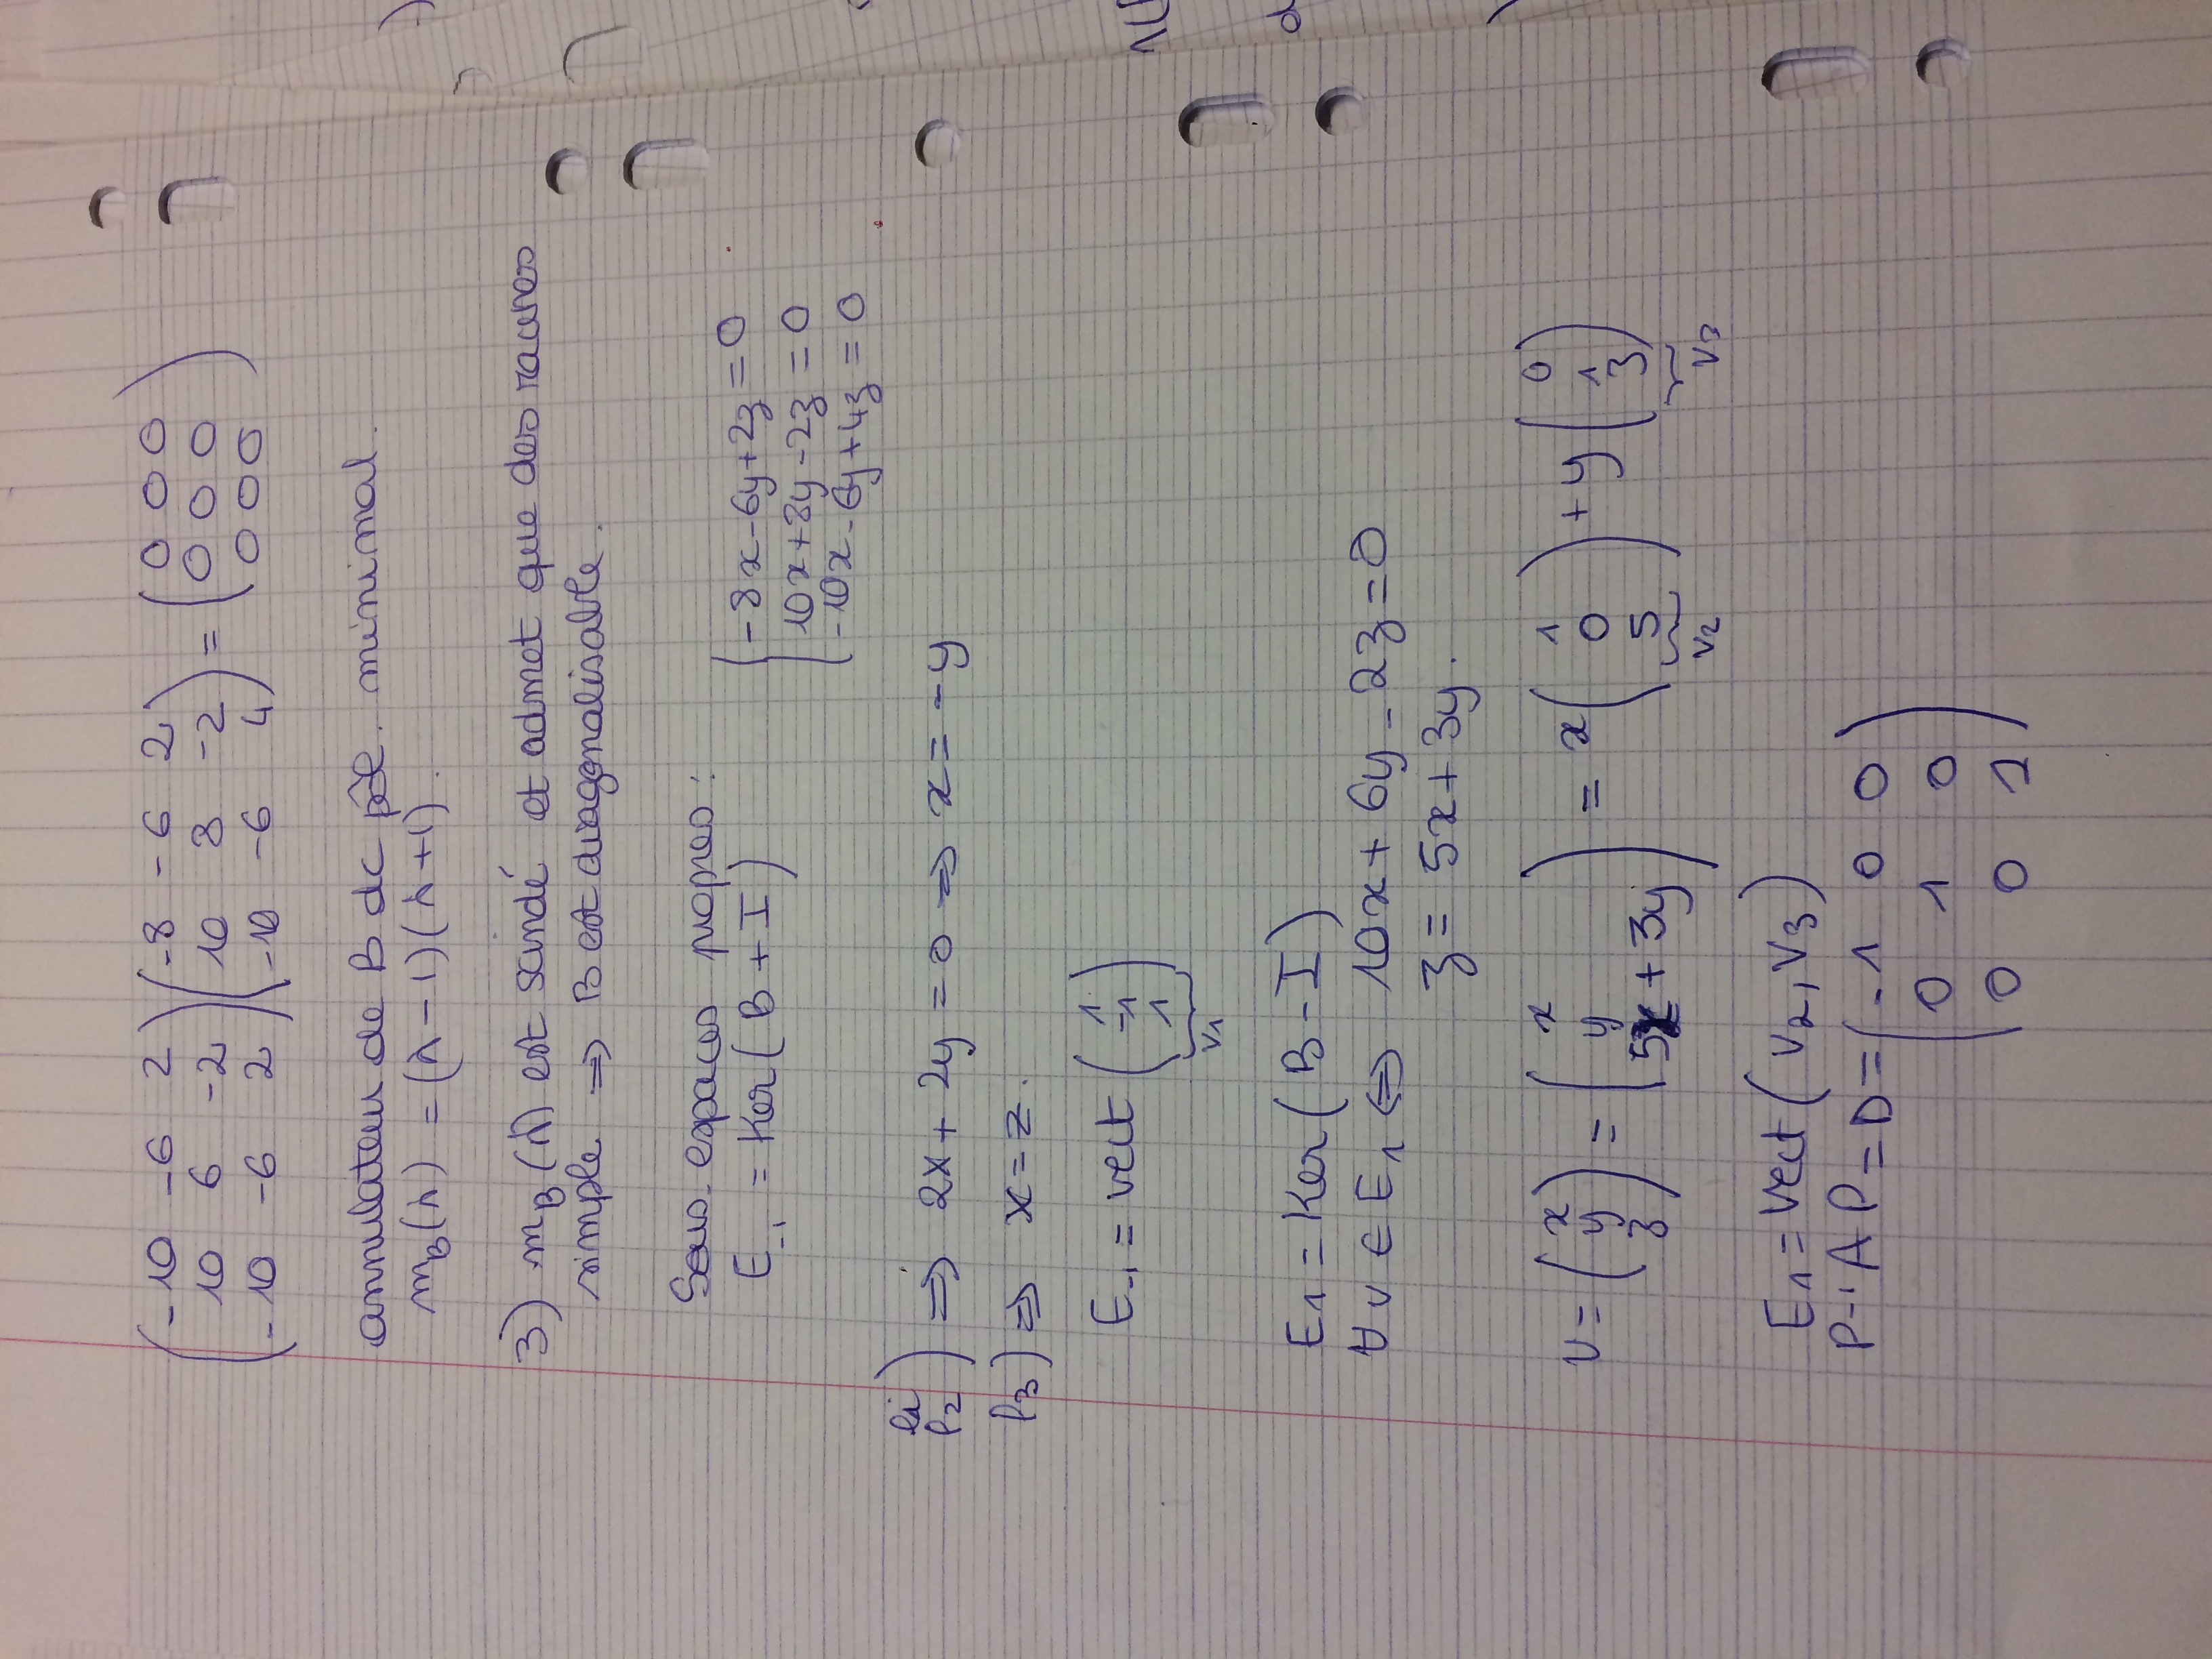 ( -10 -6 2 ) ( -8 -6 2 ) = ( 0 0 0 )
( 10 6 -2 ) ( 10 8 -2 ) ( 0 0 0 )
( -10 -6 2 ) ( -10 -6 4 ) ( 0 0 0 )
annulateur de B dc pôl. minimal.
m_B(λ) = (λ-1)(λ+1).
3) m_B(λ) est scindé et admet que des racines
simple ⇒ B est diagonalisable.
Sous-espaces propres :
E_-1 = Ker(B + I)
-8x-6y+2z = 0
10x+8y-2z = 0
-10x-6y+4z = 0
l1
l2 ) ⇒ 2x + 2y = 0 ⇒ x = -y
l3) ⇒ x = z.
E_-1 = vect ( 1 -1 1 )
v1
E1 = Ker(B - I)
∀ v ∈ E1 ⇔ 10x + 6y - 2z = 0
z = 5x + 3y.
v = ( x y z ) = ( x y 5x + 3y ) = x ( 1 0 5 ) + y ( 0 1 3 )
v2 v3
E1 = Vect(v2, v3)
P-1 A P = D = ( -1 0 0 )
0 1 0
0 0 1